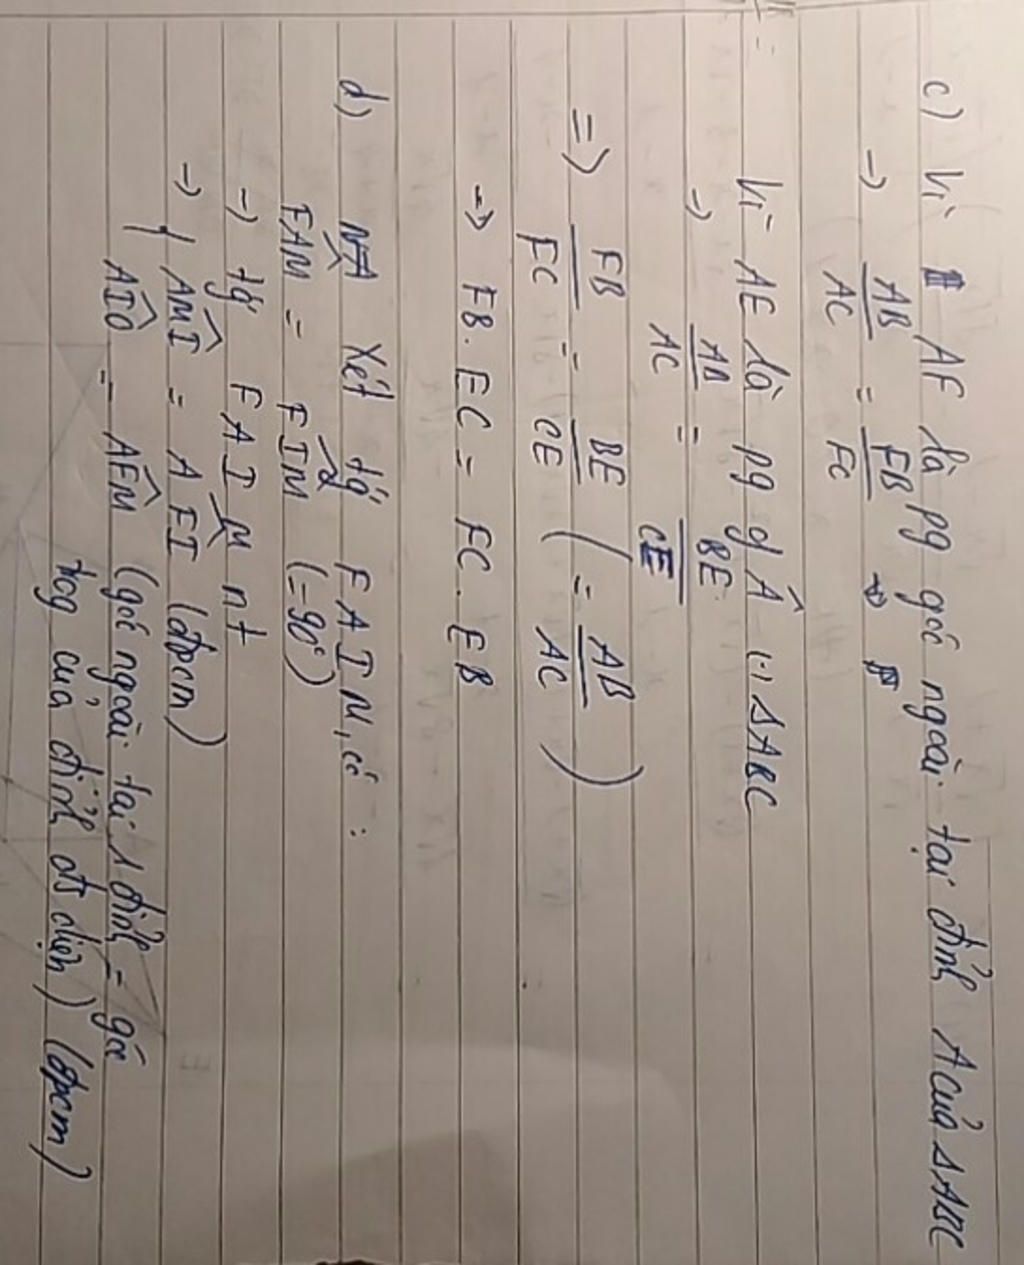 c) Vì AF là pg góc ngoài tại đỉnh A của ΔABC
→ AB/AC = FB/FC
Vì AE là pg of Â (·) ΔABC
→ AB/AC = BE/CE
=> FB/FC = BE/CE (= AB/AC)
→ FB. EC = FC. EB
d) Xét tg FAIM, có:
FAM = FIM (=90°)
→ tg FAIM nt
→ { AMI = AFI (đpcm)
AIO = AFM (góc ngoài tại 1 đỉnh = góc
tog của đỉnh đối diện) (đpcm)